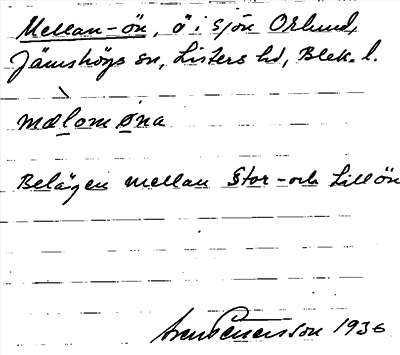 Mellan-ön, ö i sjön Orlund,
Jämshögs sn, Listers hd, Blek. l.
mælom øna
Belägen mellan Stor- och Lillön
Sven Benson 1936